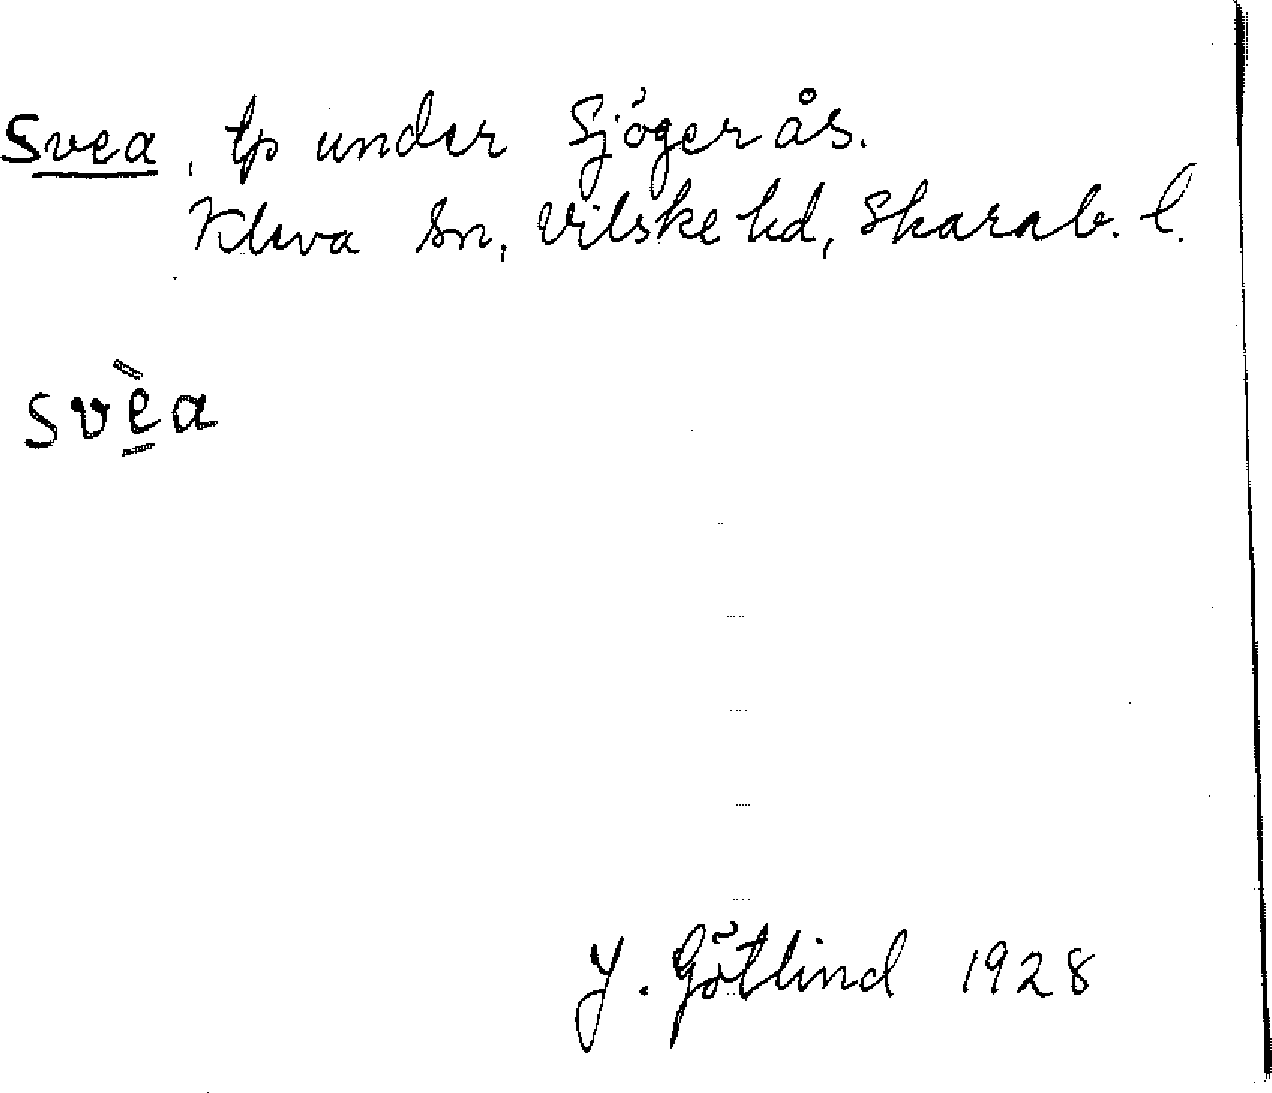 Svea, tp under Sjögerås.
Kleva sn, Vilske hd, Skarab. l.
svèa
J. Götlind 1928